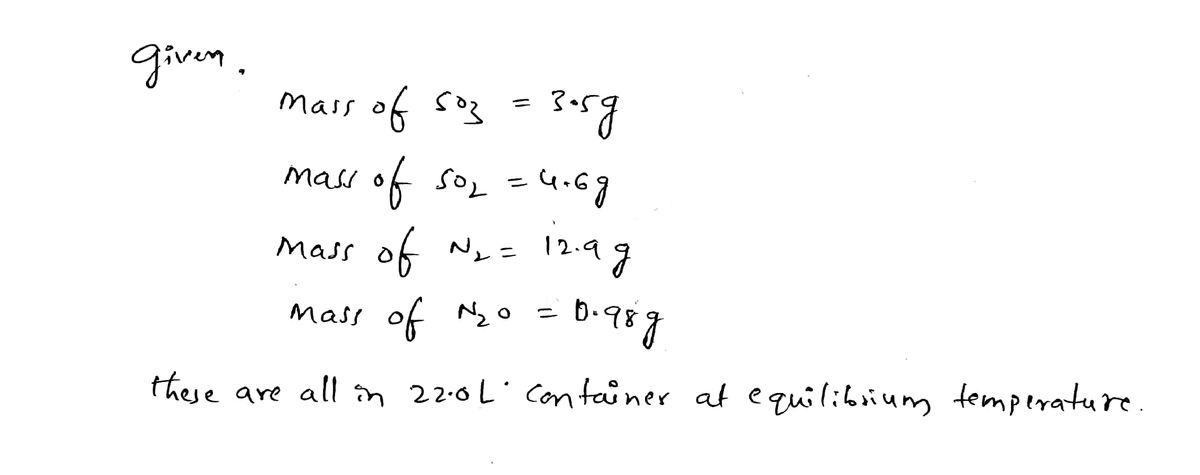 given.
Mass of SO3 = 3.5g
Mass of SO2 = 4.6g
Mass of N2 = 12.9 g
Mass of N2O = 0.98g
these are all in 22.0L container at equilibrium temperature.